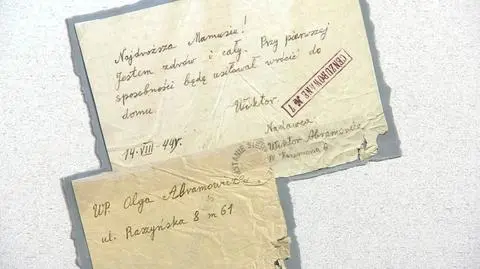 Najdroższa Mamusiu!
Jestem zdrów i cały. Przy pierwszej
sposobności będę usiłował wrócić do
domu.
Wiktor
OCENZUROWANE
14-VIII-44r.
Nadawca
Wiktor Abramowicz
W.P. Olga Abramowicz
ul. Raszyńska 8 m 61